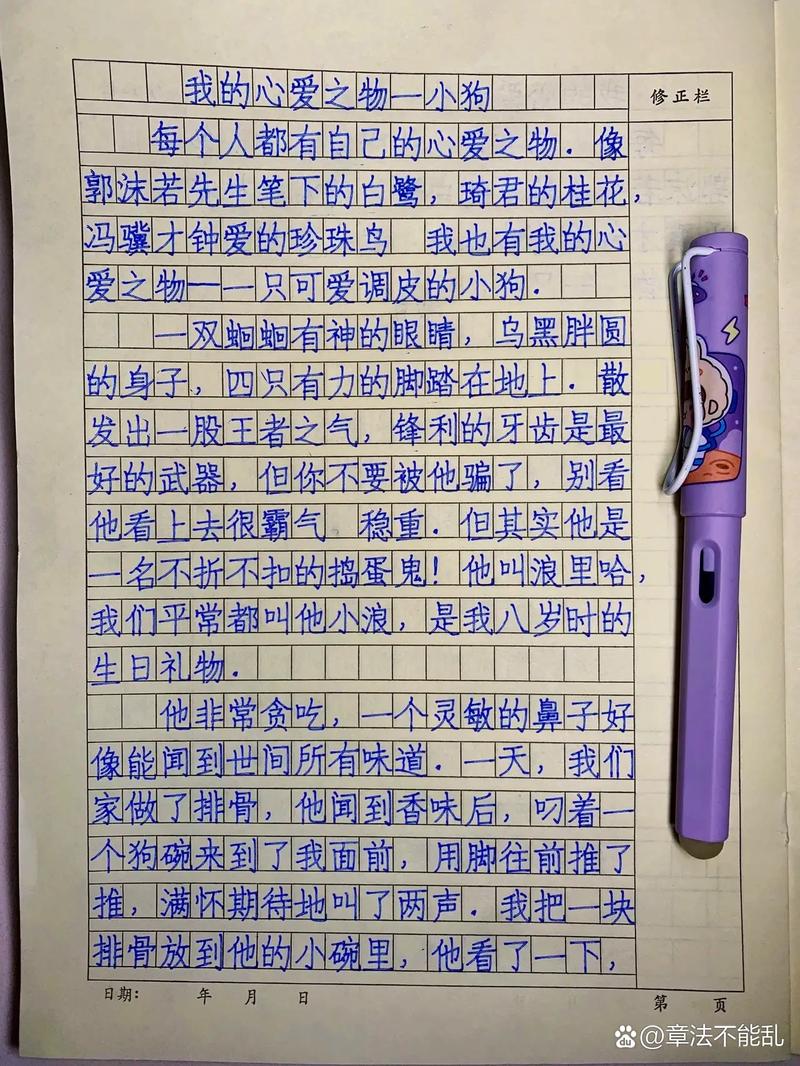 我的心爱之物一小狗
修正栏
每个人都有自己的心爱之物.像
郭沫若先生笔下的白鹭,琦君的桂花,
冯骥才钟爱的珍珠鸟 我也有我的心
爱之物一一只可爱调皮的小狗.
一双蛔蛔有神的眼睛,乌黑胖圆
的身子,四只有力的脚踏在地上.散
发出一股王者之气,锋利的牙齿是最
好的武器,但你不要被他骗了,别看
他看上去很霸气 稳重.但其实他是
一名不折不扣的捣蛋鬼!他叫浪里哈,
我们平常都叫他小浪,是我八岁时的
生日礼物.
他非常贪吃,一个灵敏的鼻子好
像能闻到世间所有味道.一天,我们
家做了排骨,他闻到香味后,叼着一
个狗碗来到了我面前,用脚往前推了
推,满怀期待地叫了两声.我把一块
排骨放到他的小碗里,他看了一下,
日期: 年 月 日
第 页
Bai du @章法不能乱